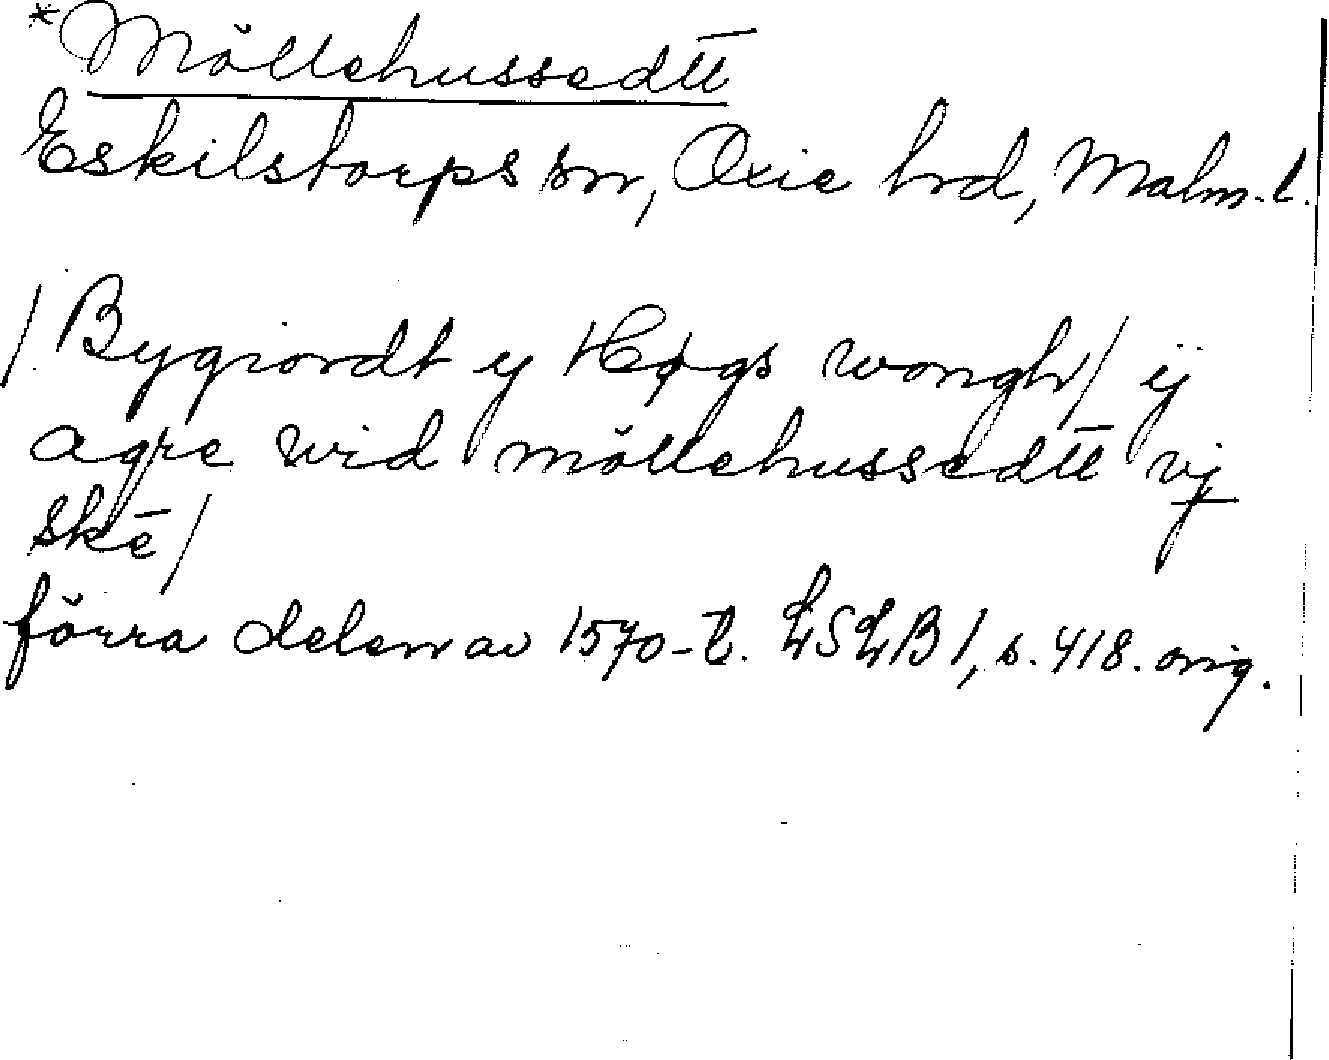 *Möllehussedtt
Eskilstorps sn, Oxie hrd, Malm. l.
/Bygiordt y Høgs wongh/ ij
agre wid möllehussedtt vj
skē/
förra delen av 1570-t. LSLB 1, s. 418. orig.